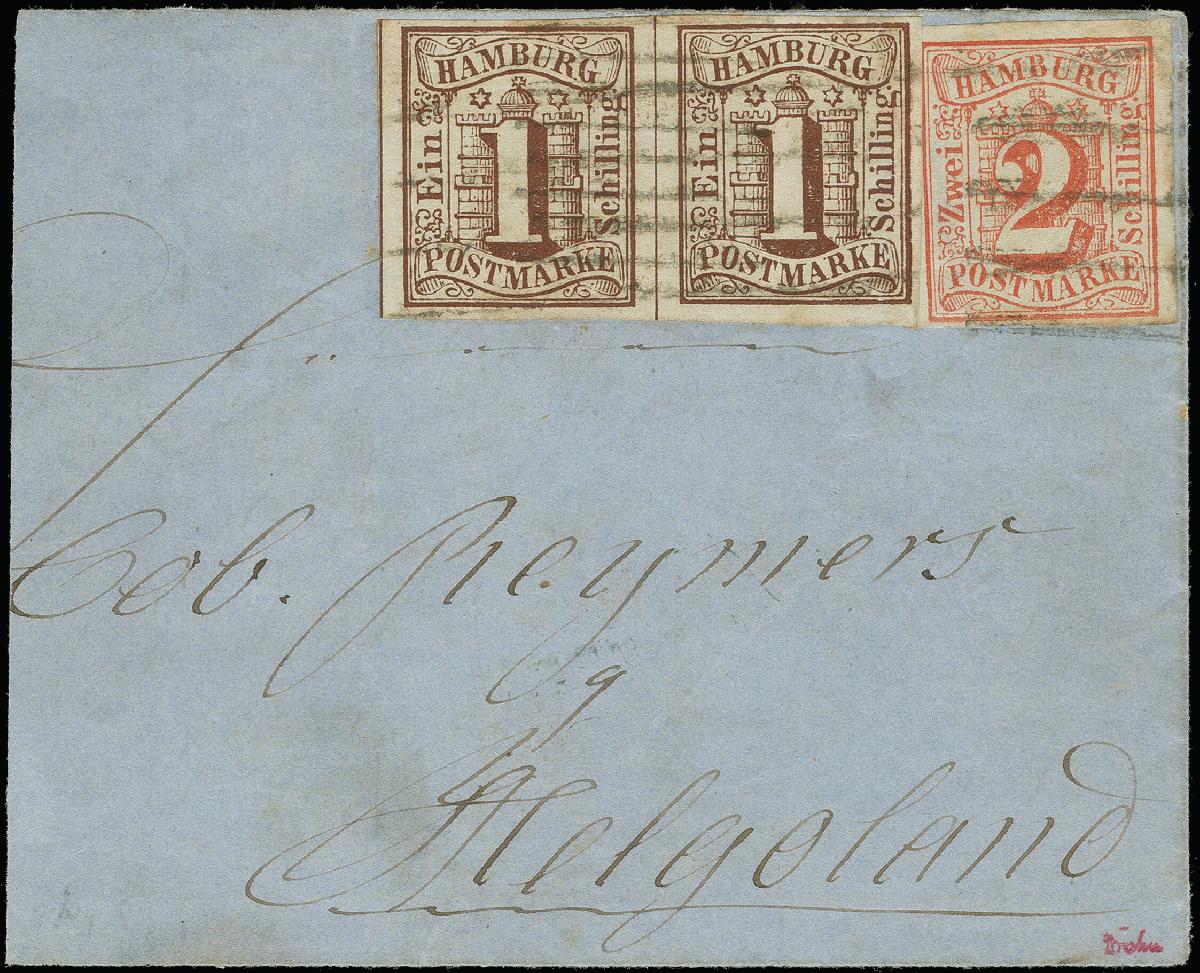 HAMBURG
Ein 1 Schilling.
POSTMARKE
HAMBURG
Ein 1 Schilling.
POSTMARKE
HAMBURG
Zwei 2 Schilling
POSTMARKE
Reymers
Helgoland